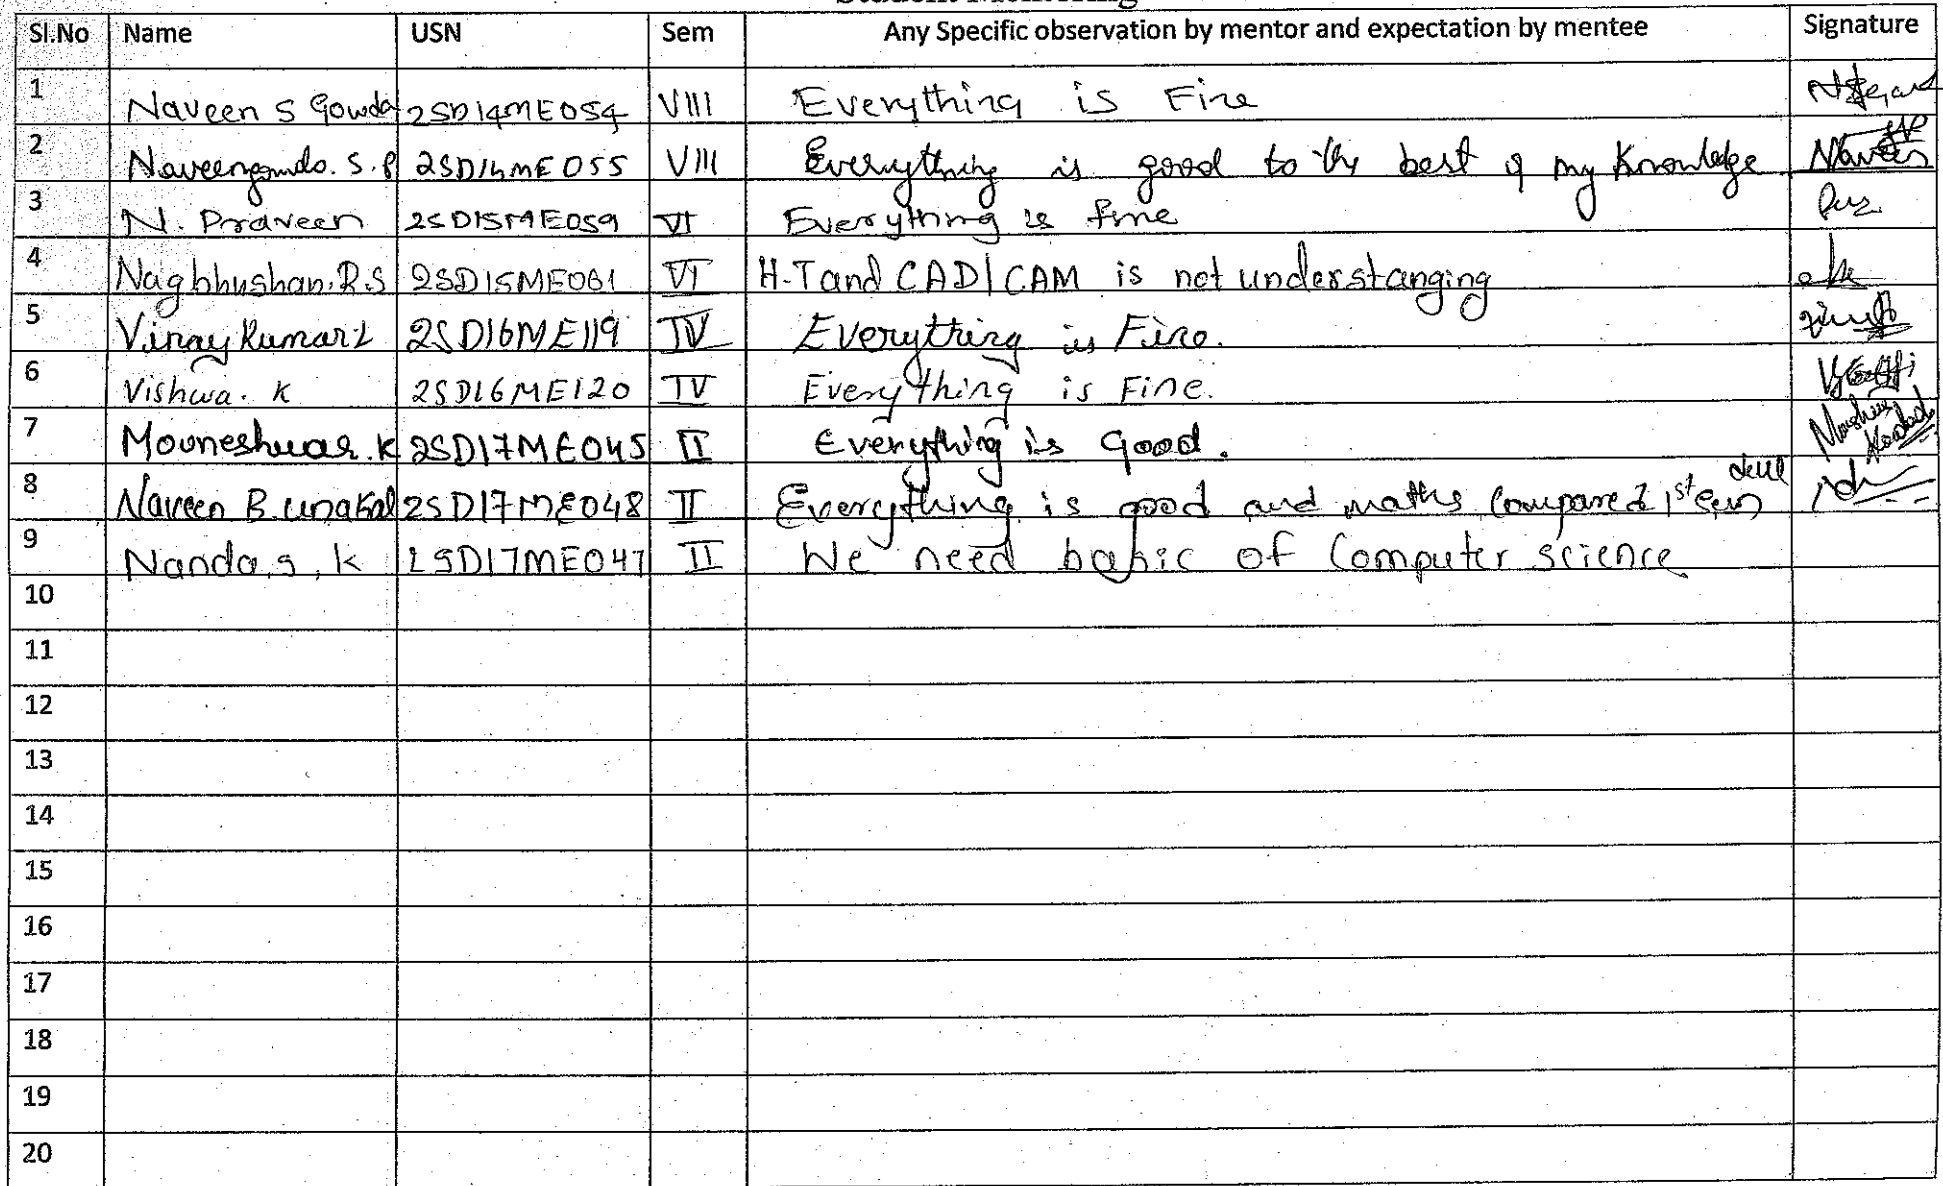 Student Mentoring
Sl.No Name USN Sem Any Specific observation by mentor and expectation by mentee Signature
1 Naveen S Gowda 2SD14ME054 VIII Everything is Fine
2 Naveengowda. S. P 2SD14ME055 VIII Everything is good to the best of my knowledge Naveen
3 N. Praveen 2SD15ME059 VI Everything is fine
4 Nagbhushan. R.S 2SD15ME061 VI H.T and CAD/CAM is not understanging
5 Vinay Kumar L 2SD16ME119 IV Everything is Fine.
6 Vishwa. K 2SD16ME120 IV Everything is Fine.
7 Mouneshwar. K 2SD17ME045 II Everything is Good.
8 Naveen B. Unakal 2SD17ME048 II Everything is good and maths compared 1st sem
9 Nanda, S, K 2SD17ME047 II We need babic of Computer science
10
11
12
13
14
15
16
17
18
19
20